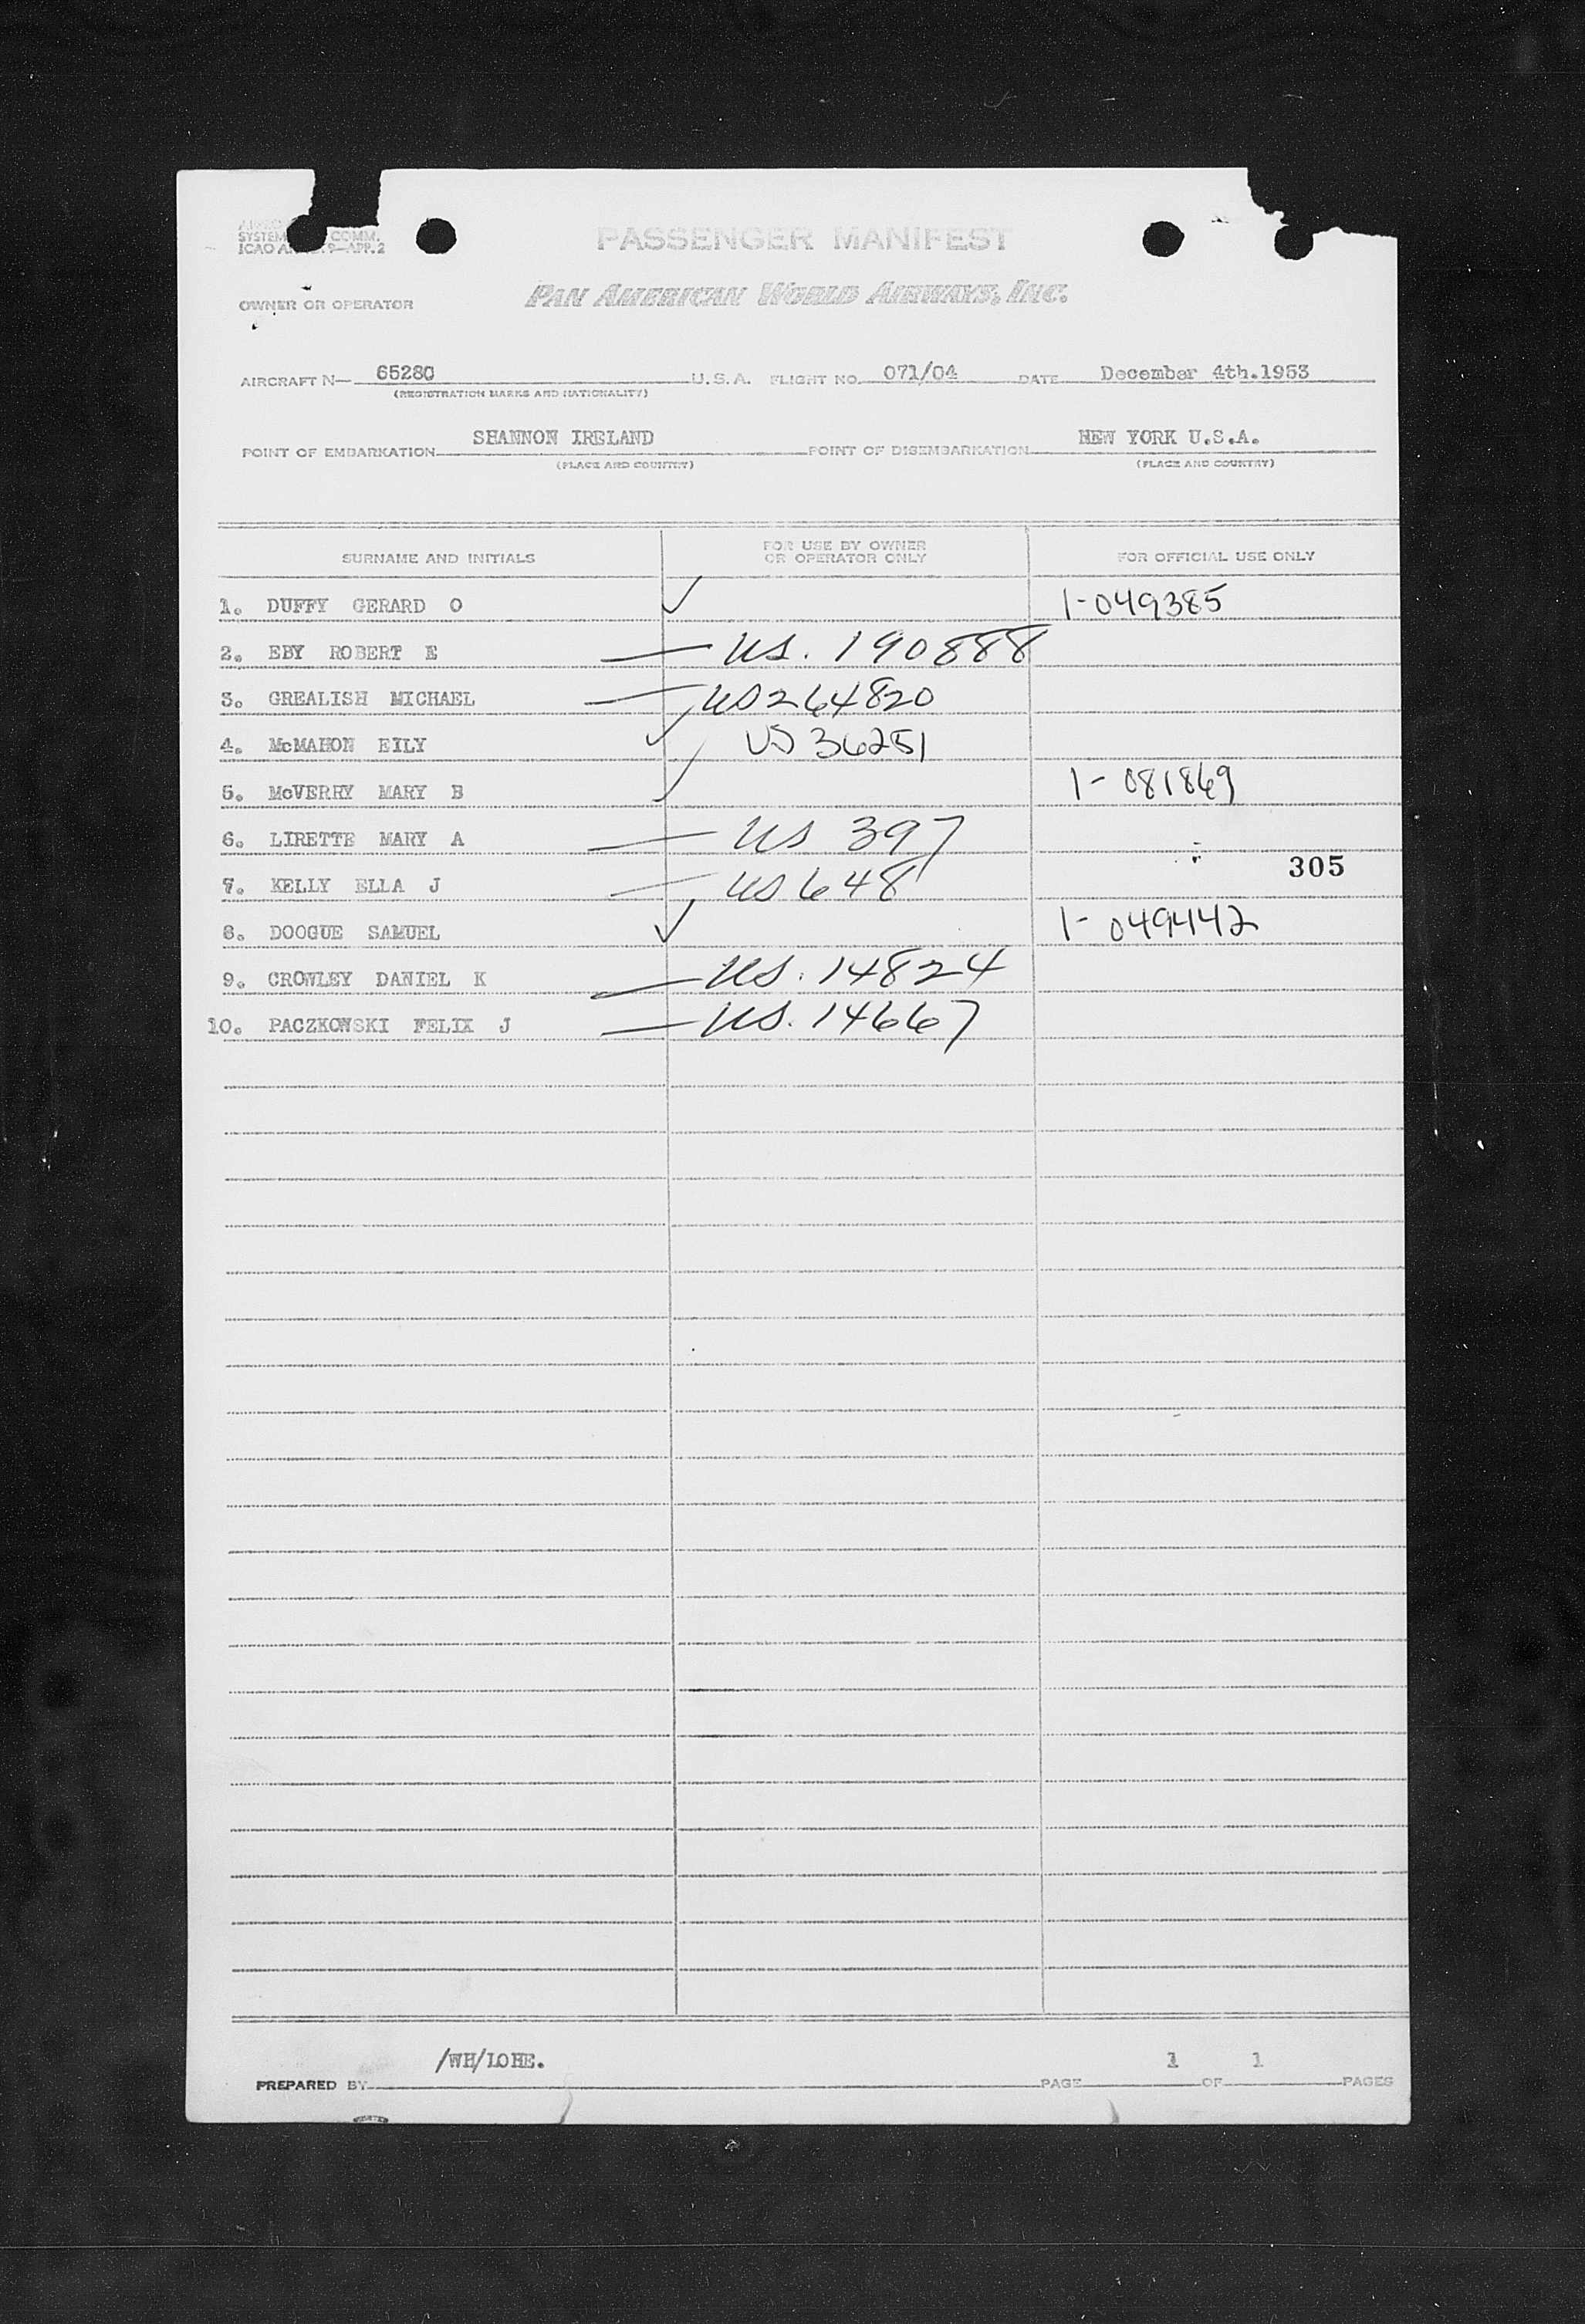 SYSTEM COMM.
ICAO 9—APP.2
PASSENGER MANIFEST
PAN AMERICAN WORLD AIRWAYS, INC.
OWNER OR OPERATOR
AIRCRAFT N— 65280 U.S.A. FLIGHT NO. 071/04 DATE December 4th.1953
(REGISTRATION MARKS AND NATIONALITY)
POINT OF EMBARKATION SHANNON IRELAND POINT OF DISEMBARKATION NEW YORK U.S.A.
(PLACE AND COUNTRY) (PLACE AND COUNTRY)
SURNAME AND INITIALS FOR USE BY OWNER OR OPERATOR ONLY FOR OFFICIAL USE ONLY
1. DUFFY GERARD O ✓ 1-049385
2. EBY ROBERT E — US. 190888
3. GREALISH MICHAEL — US 264820
4. McMAHON EILY ✓ US 36251
5. McVERRY MARY B ✓ 1-081869
6. LIRETTE MARY A — US 397
305
7. KELLY ELLA J — US 648
8. DOOGUE SAMUEL ✓ 1-049442
9. CROWLEY DANIEL K — US. 14824
10. PACZKOWSKI FELIX J — US. 14667
PREPARED BY /WH/LOHE. PAGE 1 OF 1 PAGES